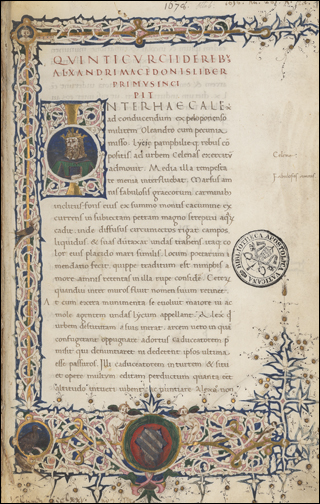 QVINTI CVRCII DE REB'
ALXANDRI MACEDONIS LIBER
PRIMVS INCI
PIT
NTER HAEC ALE
ad conducendum ex peloponenso
militem Cleandro cum pecunia
misso. Lycie pamphilie rebus co
positis ad urbem Celenas exercitu
admouit. Media illa tempesta
te menia interfluebat Marsias am
nis fabulosis graecorum carminib
inclitus fons eius ex summo montis cacumine ex
currens in subiectam petram magno strepitu aqu
cadit. inde diffusus circumiectos rigat campos
liquidus & suas dumtaxat undas trahens itaq co
lor eius placido mari similis. locum poetarum
mendacio fecit quippe traditum est nimphas a
more amnis retentas in illa rupe considere
quandiu intra muros fluit nomen suum retinet
cum extra munimenta se euoluit maiore ui ac
mole agentem undas lycum appellant
urbem destitutam a suis intrat. arcem uero in quam
confugerant oppugnare adortus caduceatorem p
misit qui denuntiaret ni dederent ipsos ultima
esse passuros. Illi caduceatorem in turrim & situ
et opere multum editam perductum quanta
altitudo intueri iubent
Celena
BIBLIOTHECA APOSTOLICA VATICANA